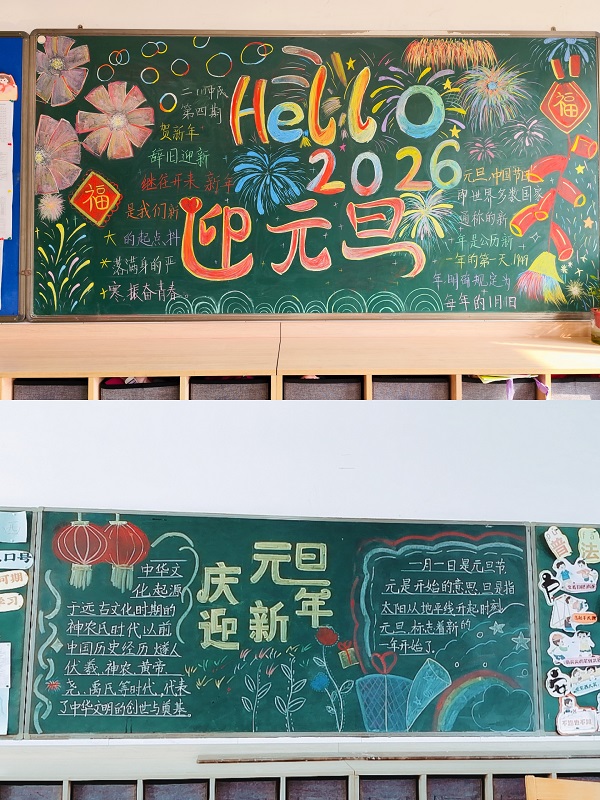 二(1)中队
第四期
Hello
2026
迎元旦
贺新年
辞旧迎新
继往开来 新年
是我们新
的起点,抖
落满身的严
寒,振奋青春。
福
福
元旦,中国节日
即世界多数国家
通称的新
年是公历新
一年的第一天1949
年明确规定为
每年的1月1日
元旦
庆 年
迎新
中华文
化,起源
于远古文化时期的
神农氏时代以前
中国历史经历燧人
伏羲、神农、黄帝、
尧、禹氏等时代,代表
了中华文明的创世与奠基。
一月一日是元旦节,
元是开始的意思,旦是指
太阳从地平线升起时刻
元旦,标志着新的
一年开始了。
普法
口号
可期
学习